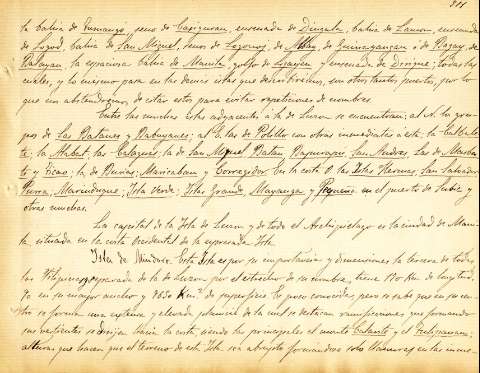 la bahia de Dumanzo, seno de Casiguran, ensenada de Dingala, bahia de Lamon, ensenada
de Sogod, bahia de San Miguel, senos de Lagonoy, de Albay, de Guinayangan ó de Ragay, de
Balayan, la espaciosa bahia de Manila, golfo de Lingayen y ensenada de Dirique; todas las
cuales, y lo mismo para en las demas islas que describiremos, son otros tantos puertos, por lo
que nos abstendremos de citar estos para evitar repeticiones de nombres.
Entre las muchas islas adyacentes á la de Luzon se encuentran; al N. los gru-
pos de Las Batanes y Babuyanes; al E. las de Polillo con otras inmediatas a esta; la Calbale-
te; la Alabat; las Calaguas; la de San Miguel, Batan, Rapurapu, San Andres, las de Masba-
te y Ticao; la de Burias; Maricaban y Corregidor. En la costa O. las Islas Hermes, San Salvador
Marinduque; Isla Verde; Islas Grande, Mayanga y Pequeña en el puerto de Subic y
otras muchas.
La capital de la Isla de Luzon y de todo el Archipielago es la ciudad de Mani-
la, situada en la costa Occidental de la espresada Isla.
Isla de Mindoro. Esta Isla es por su importancia y dimensiones la tercera de todas
las Filipinas, separada de la de Luzon por el estrecho de su nombre, tiene 170 Km. de longitud
70 en su mayor ancho y 9650 Km.² de superficie. Es poco conocida, pero se sabe que en su cen-
tro se forma una extensa y elevada planicie de la cual se destacan ramificaciones que formando
sus vertientes se dirijen hacia la costa siendo los principales el monte Calavite y el
alturas que hacen que el terreno de esta Isla sea abrupto formandose solo llanuras en las inme-